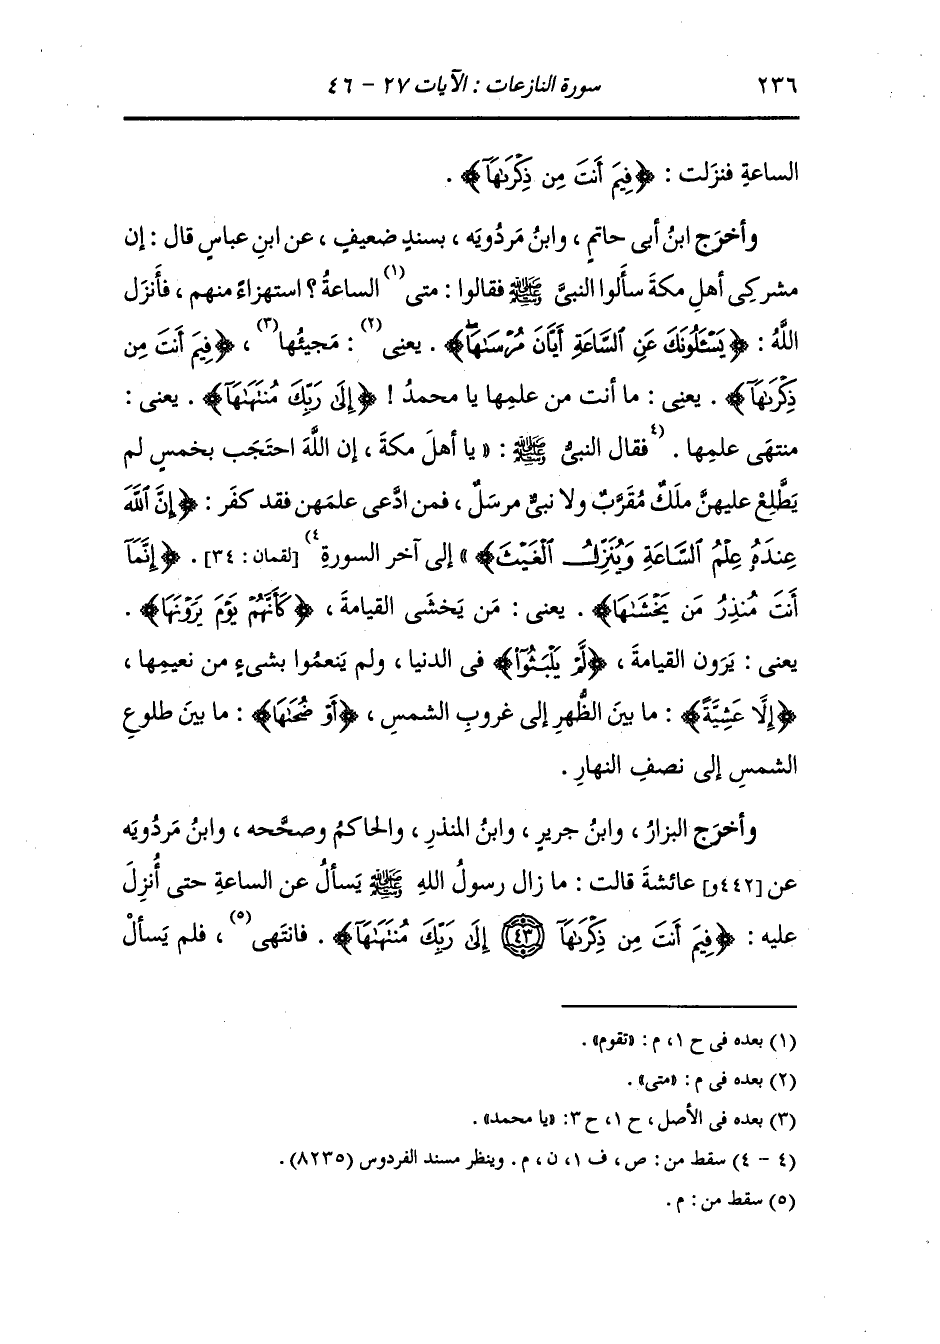 ٢٣٦ سورة النازعات : الآيات ٢٧ - ٤٦
الساعةِ فنزَلت : ﴿فِيمَ أَنتَ مِن ذِكْرَىٰهَآ﴾ .
وأخرَج ابنُ أبى حاتمٍ ، وابنُ مَردُويَه ، بسندٍ ضعيفٍ ، عن ابنِ عباسٍ قال : إن
مشركى أهلِ مكةَ سألوا النبىَّ ﷺ فقالوا : متى(١) الساعةُ ؟ استهزاءً منهم ، فأنزَل
اللَّهُ : ﴿يَسْـَٔلُونَكَ عَنِ ٱلسَّاعَةِ أَيَّانَ مُرْسَىٰهَا﴾ . يعنى(٢) : مَجيئُها(٣) ، ﴿فِيمَ أَنتَ مِن
ذِكْرَىٰهَآ﴾ . يعنِى : ما أنت من علمِها يا محمدُ ! ﴿إِلَىٰ رَبِّكَ مُنتَهَىٰهَآ﴾ . يعنى :
منتهَى علمِها . (٤فقال النبىُّ ﷺ : «يا أهلَ مكةَ ، إن اللَّهَ احتَجَب بخمسٍ لم
يَطَّلِعْ عليهنَّ ملَكٌ مُقَرَّبٌ ولا نبىٌّ مرسَلٌ ، فمن ادَّعى علمَهن فقد كفَر : ﴿إِنَّ ٱللَّهَ
عِندَهُۥ عِلْمُ ٱلسَّاعَةِ وَيُنَزِّلُ ٱلْغَيْثَ﴾» إلى آخر السورةِ٤) [لقمان : ٣٤] . ﴿إِنَّمَآ
أَنتَ مُنذِرُ مَن يَخْشَىٰهَا﴾ . يعنى : مَن يَخشَى القيامةَ ، ﴿كَأَنَّهُمْ يَوْمَ يَرَوْنَهَا﴾ .
يعنى : يَرَون القيامةَ ، ﴿لَمْ يَلْبَثُوٓا۟﴾ فى الدنيا ، ولم يَنعمُوا بشىءٍ من نعيمِها ،
﴿إِلَّا عَشِيَّةً﴾ : ما بينَ الظُّهرِ إلى غروبِ الشمسِ ، ﴿أَوْ ضُحَىٰهَا﴾ : ما بينَ طلوعِ
الشمسِ إلى نصفِ النهارِ .
وأخرَج البزارُ ، وابنُ جريرٍ ، وابنُ المنذرِ ، والحاكمُ وصحَّحه ، وابنُ مَردُويَه
عن [٤٤٢و] عائشةَ قالت : ما زال رسولُ اللهِ ﷺ يَسألُ عن الساعةِ حتى أُنزِلَ
عليه : ﴿فِيمَ أَنتَ مِن ذِكْرَىٰهَآ ۝٤٣ إِلَىٰ رَبِّكَ مُنتَهَىٰهَآ﴾ . فانتَهى(٥) ، فلم يَسألْ
(١) بعده فى ح ١، م : «تقوم» .
(٢) بعده فى م : «متى» .
(٣) بعده فى الأصل ، ح ١، ح ٣: «يا محمد» .
(٤ - ٤) سقط من : ص ، ف ١، ن ، م . وينظر مسند الفردوس (٨٢٣٥) .
(٥) سقط من : م .